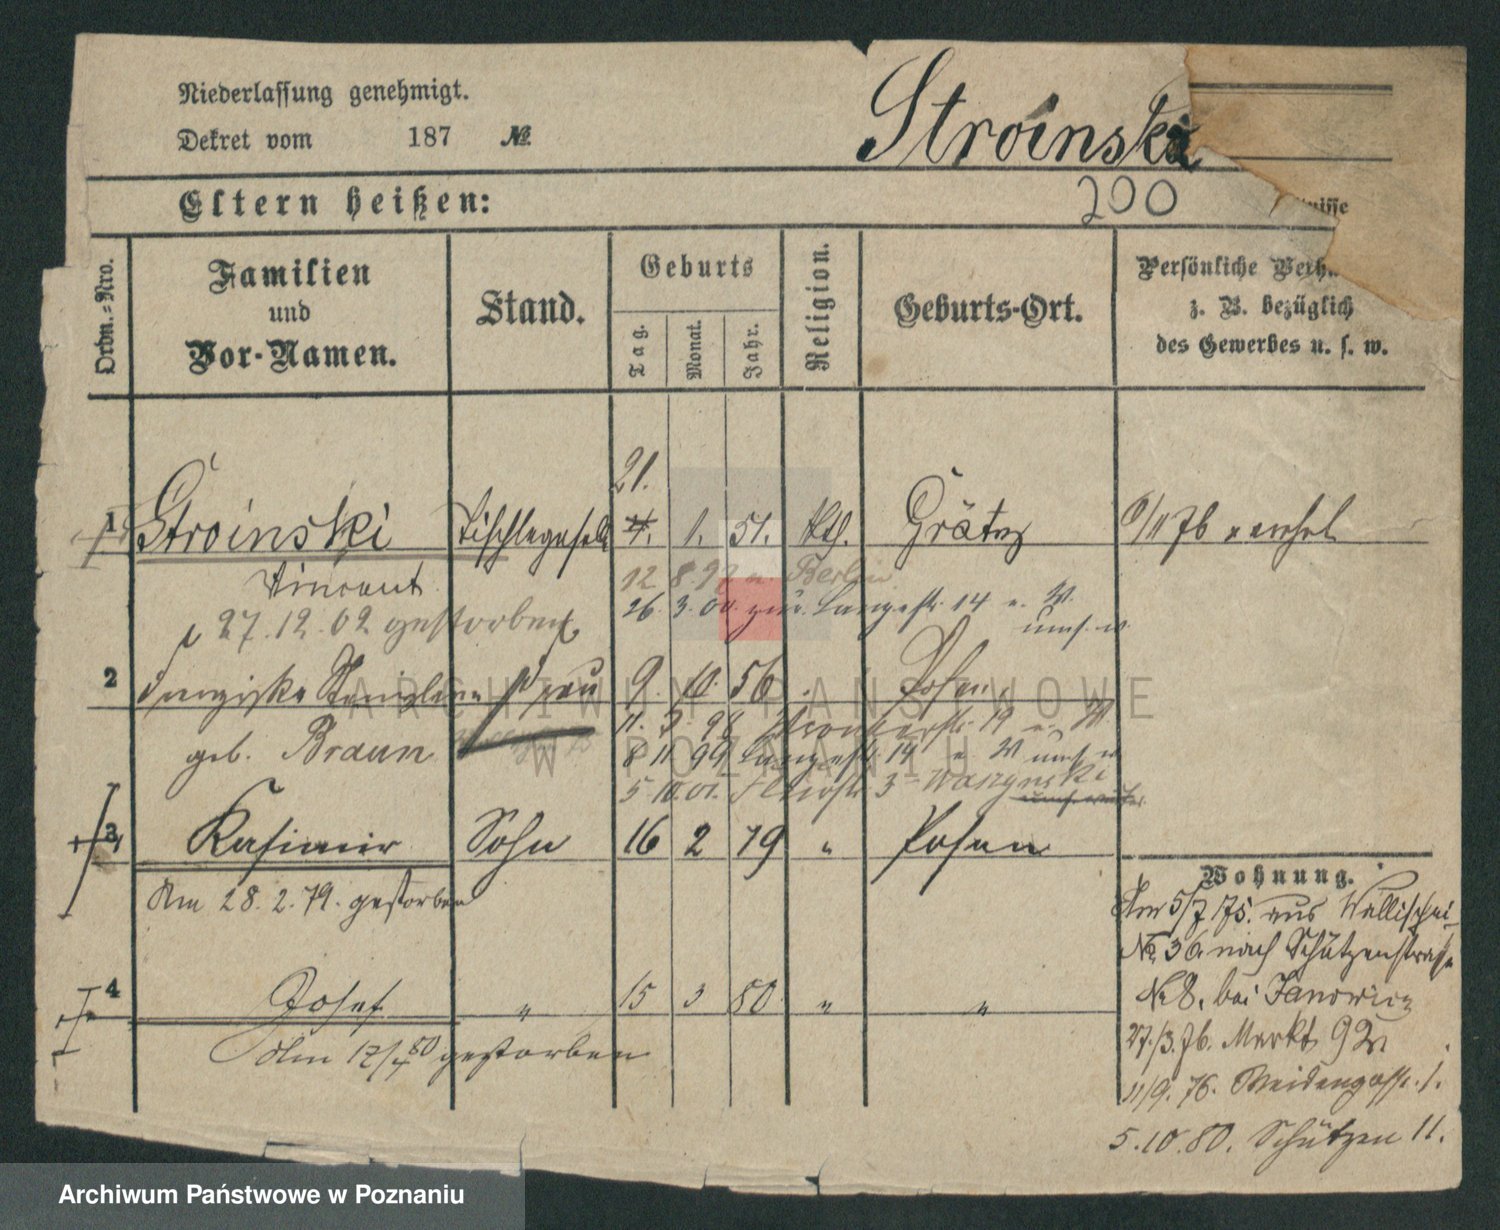 Niederlassung genehmigt.
Dekret vom 187 №
Stroinski
Eltern heißen:
200
nisse
Ordn.-Nro.
Familien
und
Vor-Namen.
Stand.
Geburts
Tag.
Monat.
Jahr.
Religion.
Geburts-Ort.
Persönliche Verh
z. B. bezüglich
des Gewerbes u. s. w.
21.
1 Stroinski Tischlergesell 1. 51. Kth. Grätz
Vincent
12 8.97 n. Berlin
26. 3.00 zur. Langestr. 14
27.12.02 gestorben
2 Franziska Frau 9. 10. 56 Posen
geb. Braun
11. 3. 98 19
8 11 99 Langestr 14
5 10.01. 3
3 Kasimir Sohn 16 2 79 " Posen
Am 28. 2. 79. gestorben
4 Josef " 15 3 80 " "
Am 12/ 80 gestorben
Wohnung.
Am 5/7 75. aus Wallischei
No 36. nach Schützenstrasse
No 8. bei Janowicz
27./3. 76. Markt 92
11/9. 76. Weidengasse. 1.
5.10.80. Schützen 11.
ARCHIWUM PAŃSTWOWE
W POZNANIU
Archiwum Państwowe w Poznaniu